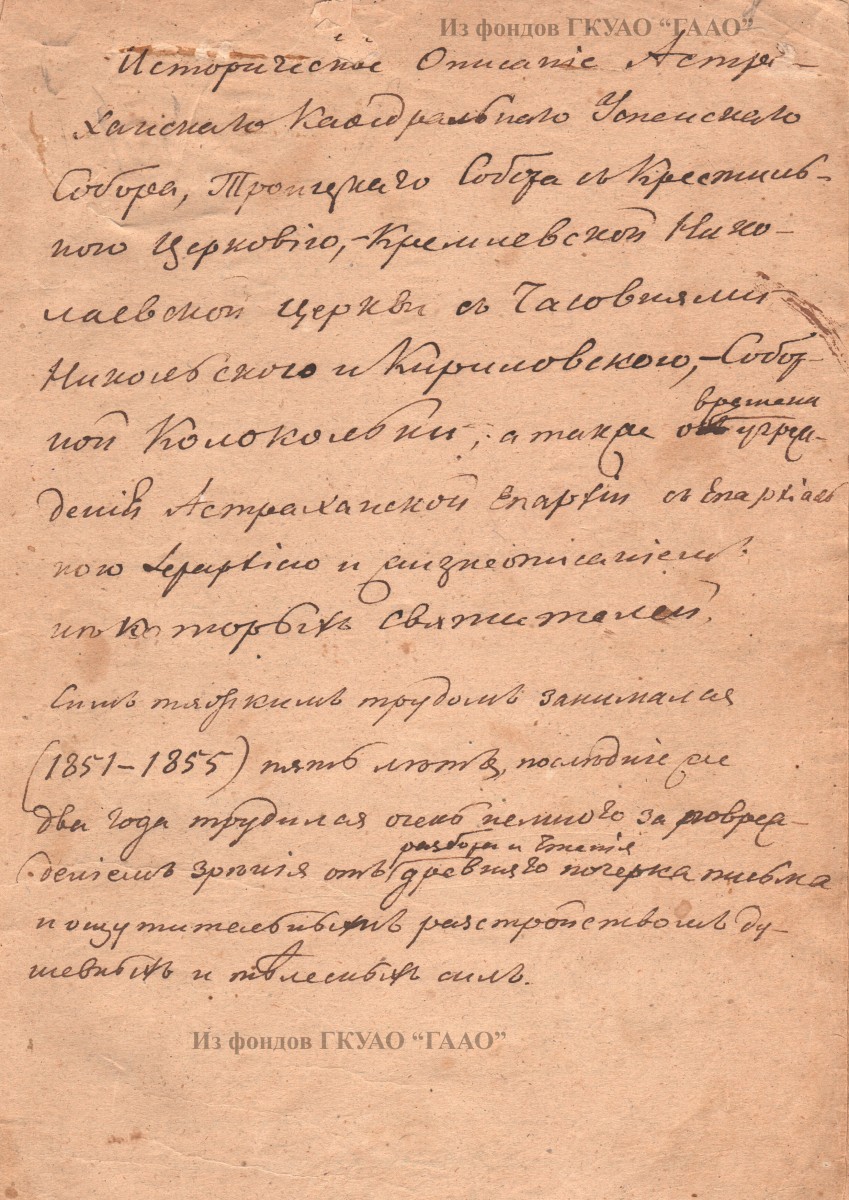 Из фондов ГКУАО “ГААО”
Историческое Описаніе Астра-
ханскаго Каѳедральнаго Успенскаго
Собора, Троицкаго Собора съ Крестиль-
ною Церковію, – Кремлевской Нико-
лаевской Церкви съ Часовнями
Никольскою и Кириловскою, – Собор-
ной Колокольни, а также
времена
учреж-
деніи Астраханской Епархіи съ Епархіаль
ною Іерархіею и жизнеописаніемъ
нѣкоторыхъ Святителей.
Симъ тяжкимъ трудомъ занимался
(1851–1855) пять лѣтъ, послѣдніе же
два года трудился очень немного за поврежд-
разбора и чтенія
деніемъ зрѣнія отъ древняго почерка письма
и ощутительнымъ разстройствомъ ду-
шевныхъ и тѣлесныхъ силъ.
Из фондов ГКУАО “ГААО”